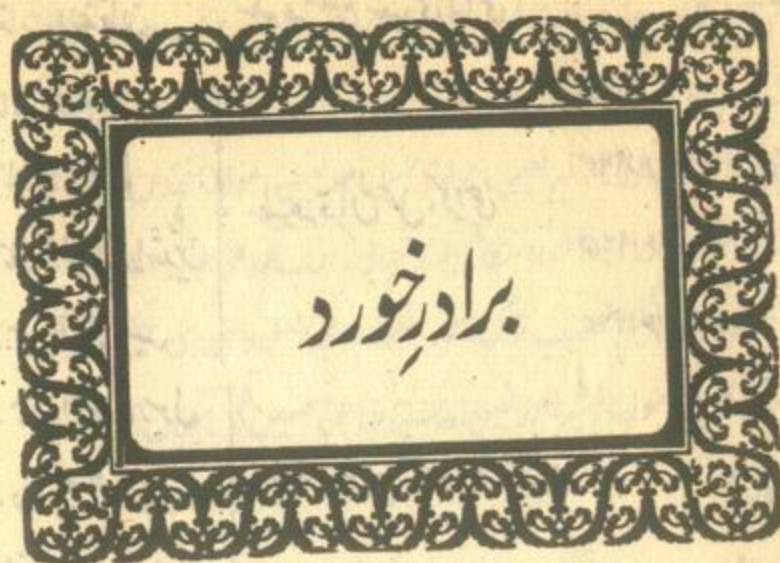 برادرِ خورد